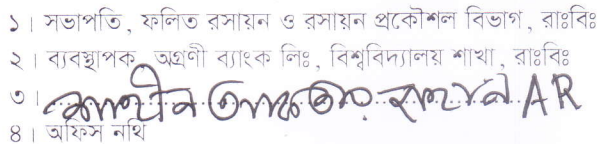 ১। সভাপতি, ফলিত রসায়ন ও রসায়ন প্রকৌশল বিভাগ, রাঃবিঃ
২। ব্যবস্থাপক, অগ্রণী ব্যাংক লিঃ, বিশ্ববিদ্যালয় শাখা, রাঃবিঃ
৩। AR
৪। অফিস নথি